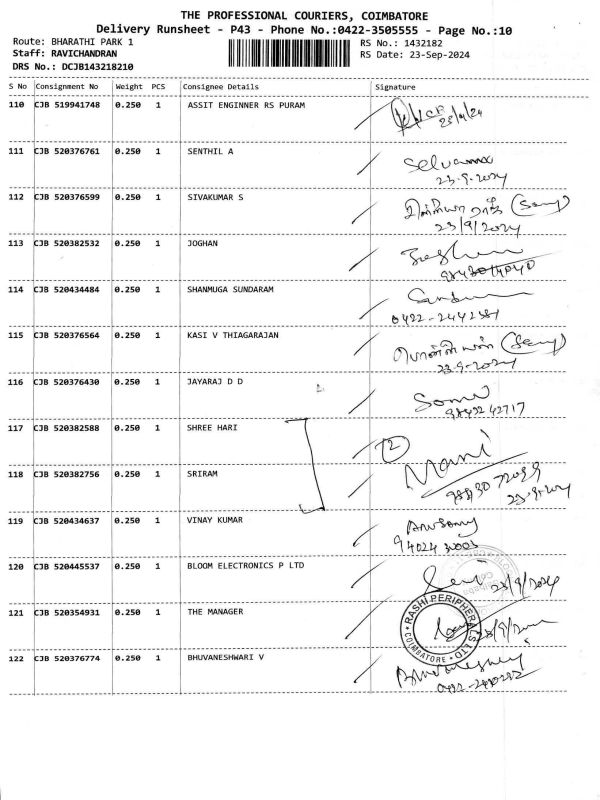 THE PROFESSIONAL COURIERS, COIMBATORE
Delivery Runsheet - P43 - Phone No.:0422-3505555 - Page No.:10
Route: BHARATHI PARK 1 RS No.: 1432182
Staff: RAVICHANDRAN RS Date: 23-Sep-2024
DRS No.: DCJB143218210
S No Consignment No Weight PCS Consignee Details Signature
110 CJB 519941748 0.250 1 ASSIT ENGINNER RS PURAM
111 CJB 520376761 0.250 1 SENTHIL A
23-9-2024
112 CJB 520376599 0.250 1 SIVAKUMAR S
23/9/2024
113 CJB 520382532 0.250 1 JOGHAN
114 CJB 520434484 0.250 1 SHANMUGA SUNDARAM
115 CJB 520376564 0.250 1 KASI V THIAGARAJAN
23-9-2024
116 CJB 520376430 0.250 1 JAYARAJ D D
117 CJB 520382588 0.250 1 SHREE HARI 2
Mani
118 CJB 520382756 0.250 1 SRIRAM
23-9-2024
119 CJB 520434637 0.250 1 VINAY KUMAR
120 CJB 520445537 0.250 1 BLOOM ELECTRONICS P LTD
23/9/2024
121 CJB 520354931 0.250 1 THE MANAGER
RASHI PERIPHERALS LTD
COIMBATORE
122 CJB 520376774 0.250 1 BHUVANESHWARI V